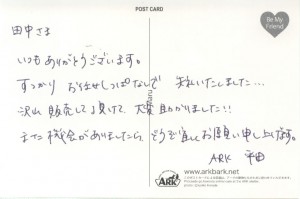 POST CARD
Be My Friend
田中さま
いつもありがとうございます。
すっかりお任せしっぱなしで 失礼いたしました…
沢山販売して頂けて、大変助かりました!!
また機会がありましたら、どうぞ宜しくお願い申し上げます。
ARK 平田
www.arkbark.net
ARK